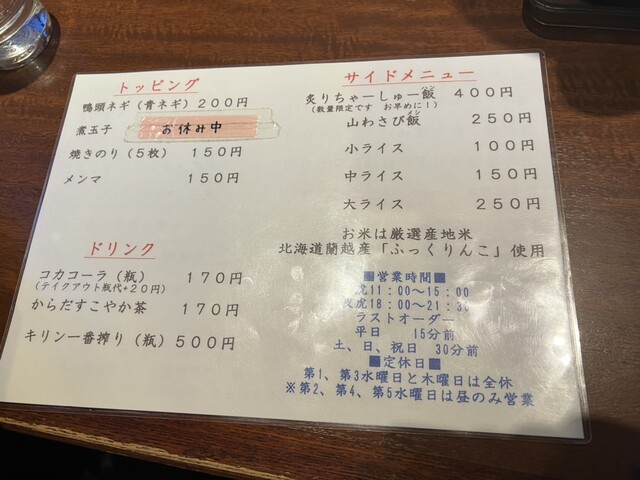 トッピング
鴨頭ネギ（青ネギ）２００円
煮玉子 お休み中
焼きのり（５枚） １５０円
メンマ １５０円
ドリンク
コカコーラ（瓶） １７０円
（テイクアウト瓶代+２０円）
からだすこやか茶 １７０円
キリン一番搾り（瓶）５００円
サイドメニュー
炙りちゃーしゅー飯 ４００円
ハン
（数量限定です お早めに！）
山わさび飯 ２５０円
メシ
小ライス １００円
中ライス １５０円
大ライス ２５０円
お米は厳選産地米
北海道蘭越産「ふっくりんこ」使用
■営業時間■
虎11：00～15：00
夜虎18：00～21：30
ラストオーダー
平日 15分前
土、日、祝日 30分前
■定休日■
第1、第3水曜日と木曜日は全休
※第2、第4、第5水曜日は昼のみ営業